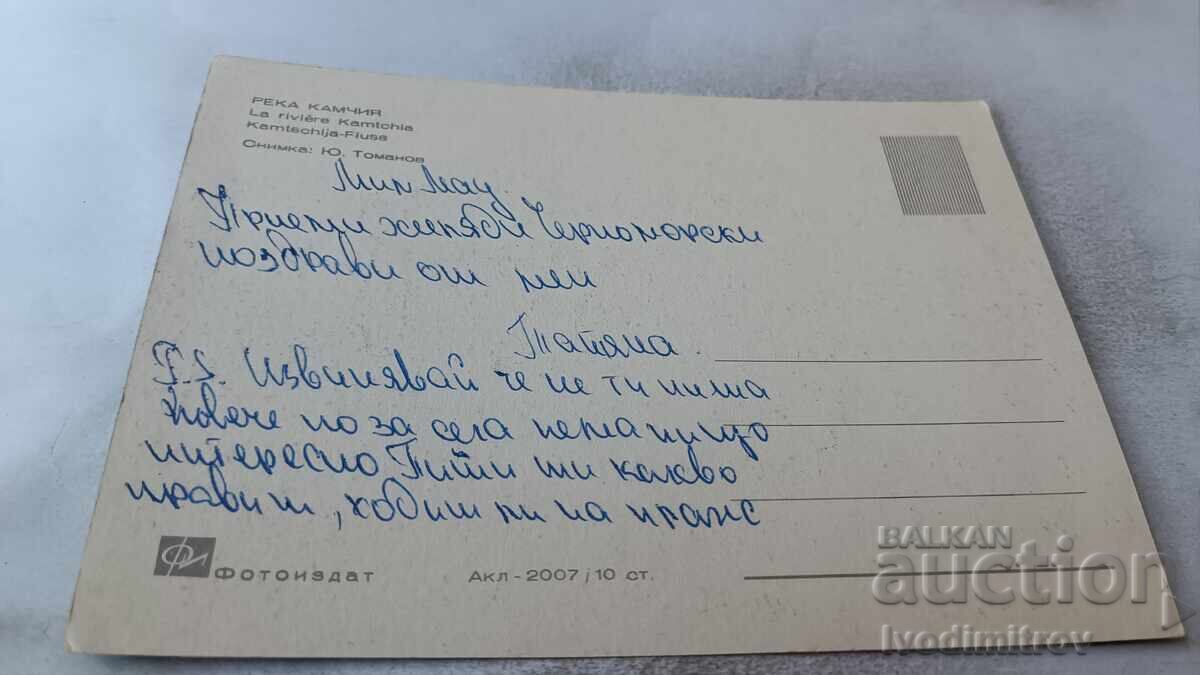 РЕКА КАМЧИЯ
La rivière Kamtchia
Kamtschija-Fluss
Снимка: Ю. Томанов
Мил
Приеми хиляди Черноморски
поздрави от мен
Татяна.
P.S. Извинявай че не ти пиша
повече но за сега няма нищо
интересно Пиши ти какво
правиш, ходиш ли на плаж
Фотоиздат
Акл-2007/10 ст.
BALKAN
auction
Ivodimitrov